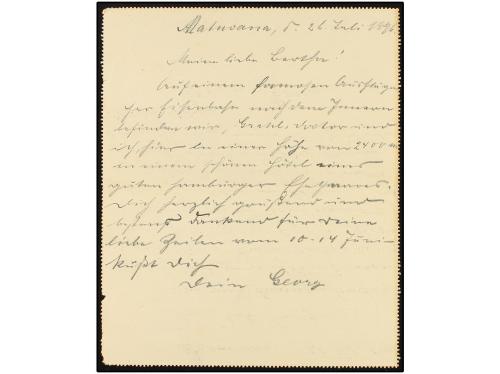 Matucana, d. 26 Juli 1896
Meine liebe Bertha!
Auf einem famosen Ausfluge
per Eisenbahn nach dem Innern
befinden wir, Gretel, Doctor und
ich, hier in einer Höhe von 2400 m
in einem schönen Hôtel eines
guten Hamburger Ehepaares.
Dich herzlich grüßend und
bestens dankend für Deine
liebe Zeilen vom 10-14 Juni
küßt Dich
Dein Georg